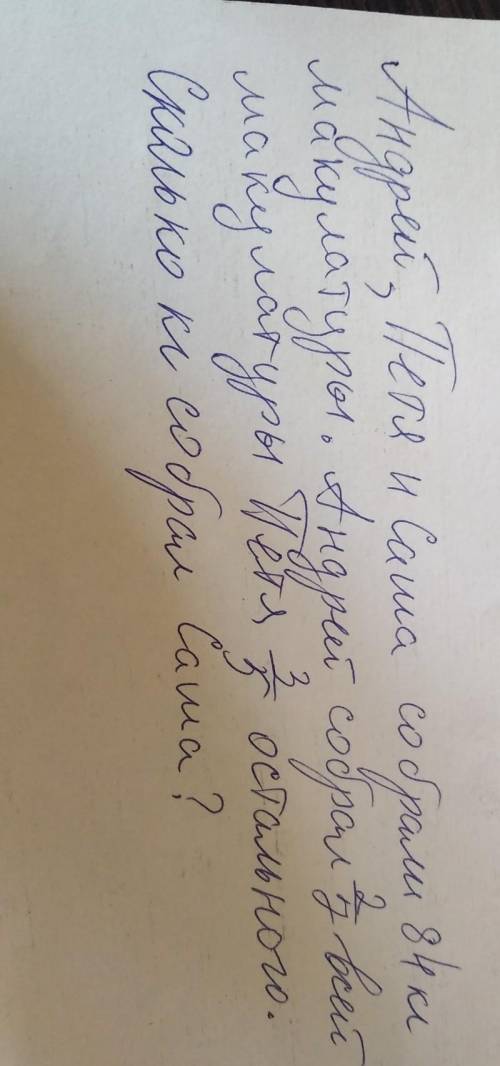 Андрей, Петя и Саша собрали 84 кг
макулатуры. Андрей собрал 2/7 всей
макулатуры Петя 3/5 остального.
Сколько кг собрал Саша?